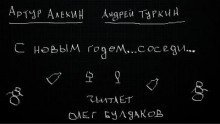 Артур Алехин Андрей Туркин
С новым годем...соседи...
Читает
Олег Булдаков